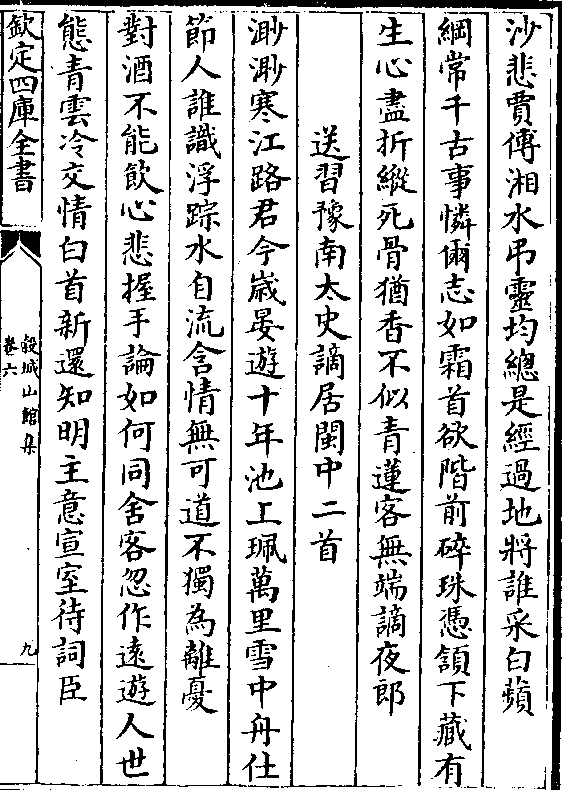 沙悲賈傅湘水弔靈均總是經過地將誰采白蘋
綱常千古事憐爾志如霜首欲階前碎珠憑頷下藏有
生心盡折縱死骨猶香不似青蓮客無端謫夜郎
送習豫南太史謫居閩中二首
渺渺寒江路君今歲晏遊十年池上珮萬里雪中舟仕
節人誰識浮踪水自流含情無可道不獨為離憂
對酒不能飲心悲握手論如何同舍客忽作遠遊人世
態青雲冷交情白首新還知明主意宣室待詞臣
欽定四庫全書
穀城山館集
卷六
九